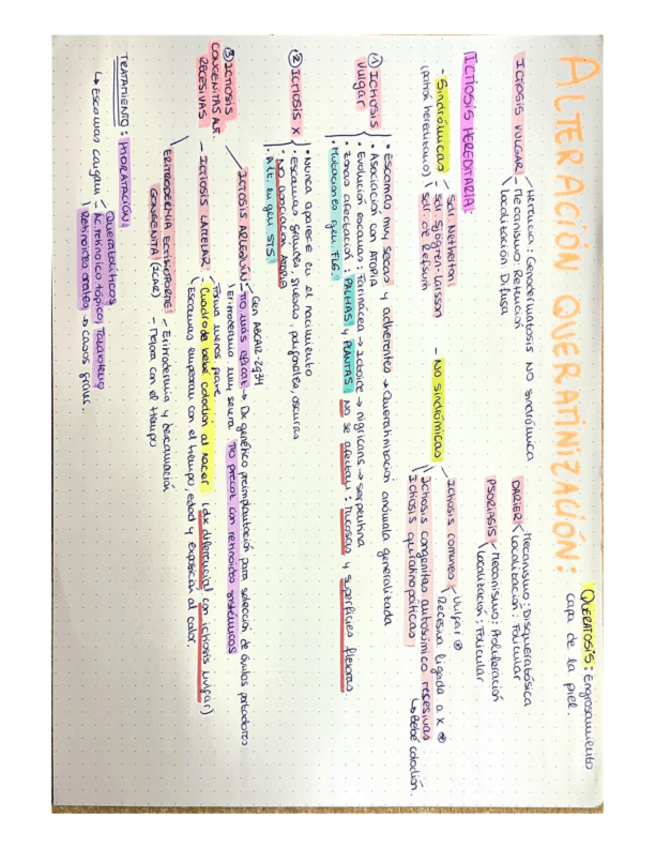 ALTERACIÓN QUERATINIZACIÓN:
QUERATOSIS: Engrosamiento
capa de la piel.
ICTIOSIS VULGAR
Herencia: Genodermatosis NO sindrómica
Mecanismo: Retención
Localización Difusa
DARIER
Mecanismo: Disqueratósica
Localización: Folicular
PSORIASIS
Mecanismo: Proliferación
Localización: Folicular
ICTIOSIS HEREDITARIA:
- Sindrómicas
(patrón hereditario)
Sdr. Netherton
Sdr. Sjögren-Larsson
Sdr. de Refsum
- No sindrómicas
Ictiosis comunes
Vulgar
Recesiva ligada a X
Ictiosis congénitas autosómico recesivas
↳ Bebé colodión.
Ictiosis queratinopáticas
① ICTIOSIS vulgar
• Escamas muy secas y adherentes → Queratinización anómala generalizada
• Asociación con ATOPIA
• Evolución escamas: Farinácea → Ictioice → nigricans → serpentina
• Zonas afectación: PALMAS y PLANTAS. NO se afectan: Mucosas y superficies flexoras
• Mutaciones gen FLG.
② ICTIOSIS X
• Nunca aparece en el nacimiento
• Escamas grandes, gruesas, poligonales, oscuras
• NO asociación ATOPIA
• Alt. en gen STS
③ ICTIOSIS CONGÉNITAS AUT. RECESIVAS
ICTIOSIS ARLEQUÍN
Gen ABCA12-2q34
TTO más eficaz → Dx genético preimplantación para selección de óvulos portadores
Eritrodermia muy severa
TTO precoz con retinoides sistémicos
- ICTIOSIS LAMELAR
Forma menos grave
Cuadro de bebé colodión al nacer (dx diferencial con ictiosis vulgar)
Escamas empeoran con el tiempo, edad y exposición al calor.
ERITRODERMIA ICTIOSIFORME CONGÉNITA (ICAR)
- Eritrodermia y descamación
- Mejora con el tiempo
TRATAMIENTO: HIDRATACIÓN
↳ Escamas caigan
Queratolíticos
Ac. retinoico tópico, Tazaroteno
Retinoides orales → casos graves.